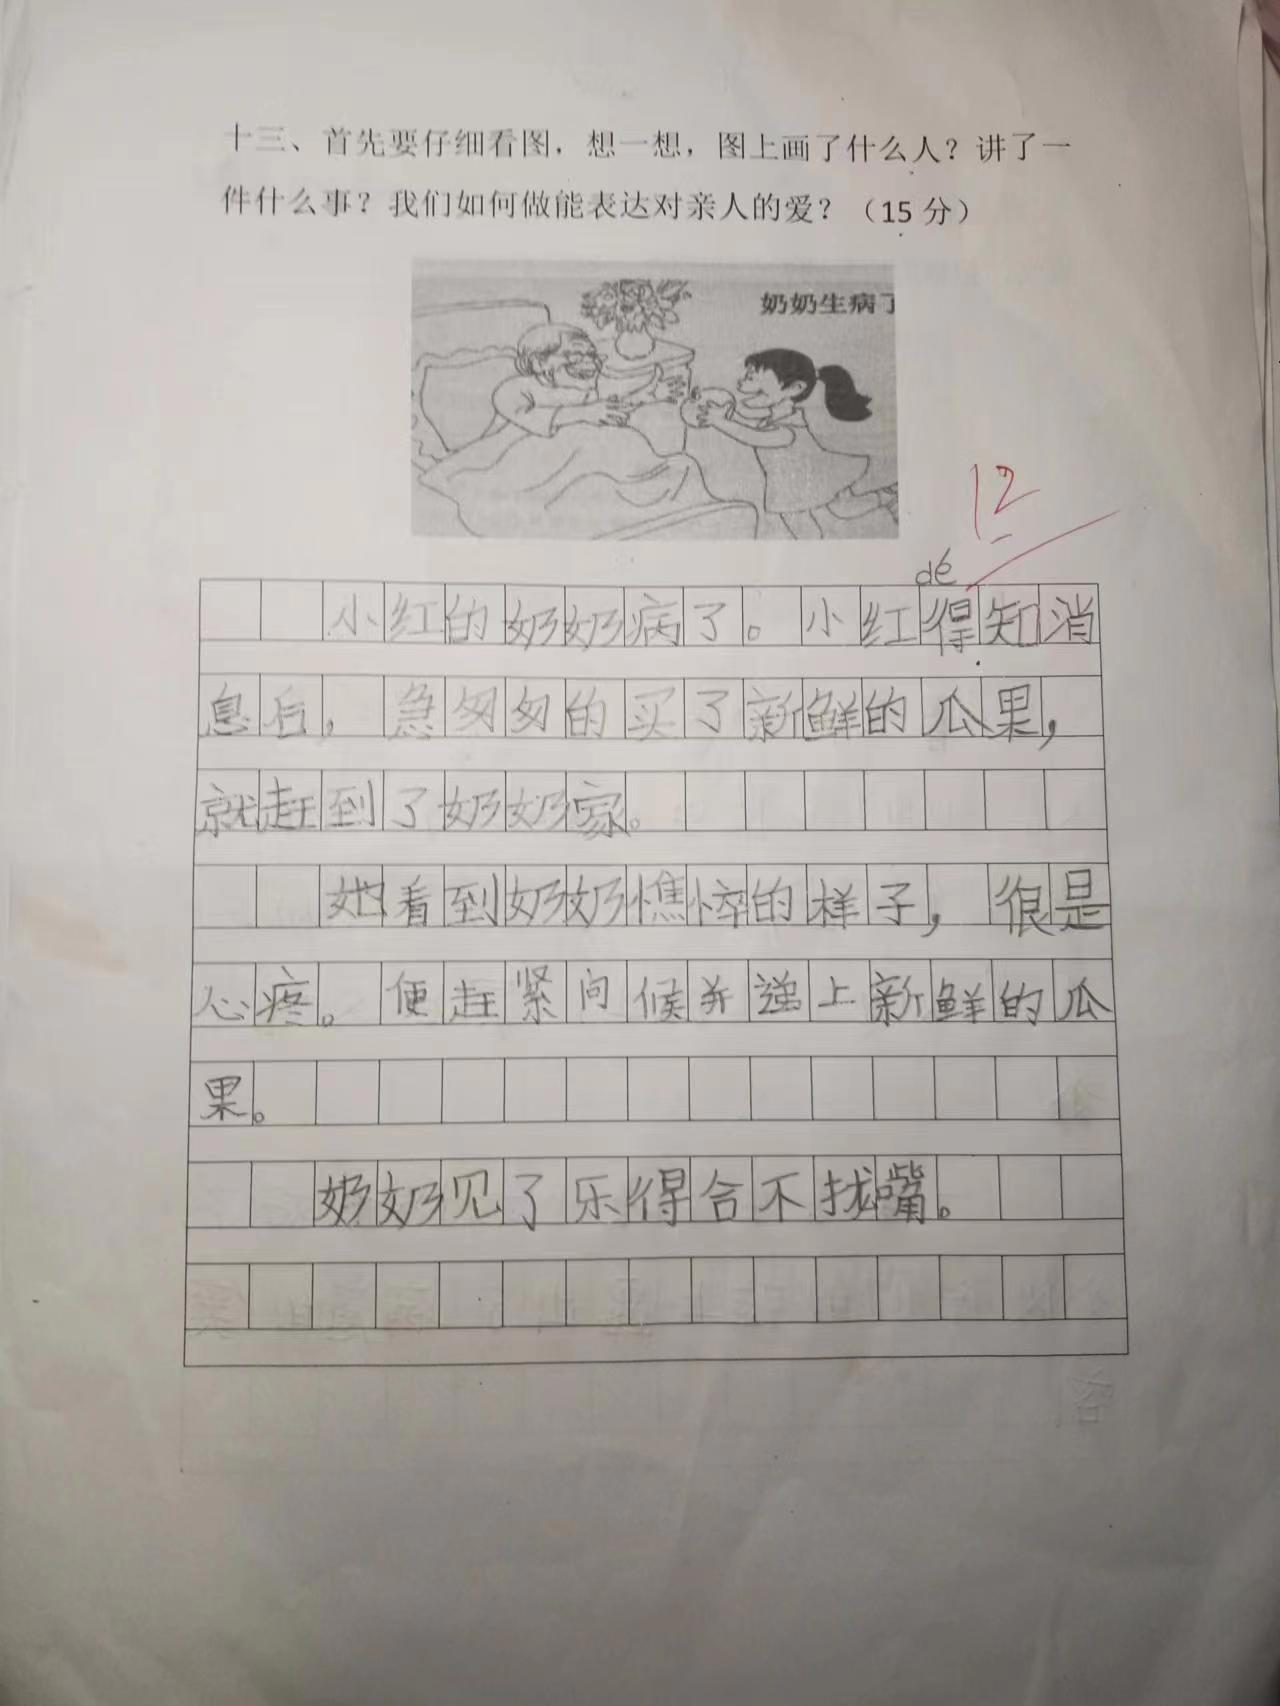 十三、首先要仔细看图，想一想，图上画了什么人？讲了一
件什么事？我们如何做能表达对亲人的爱？（15 分）
奶奶生病了
12
dé
小红的奶奶病了。小红得知消
息后，急匆匆的买了新鲜的瓜果，
就赶到了奶奶家。
她看到奶奶憔悴的样子，很是
心疼。便赶紧问候并递上新鲜的瓜
果。
奶奶见了乐得合不拢嘴。